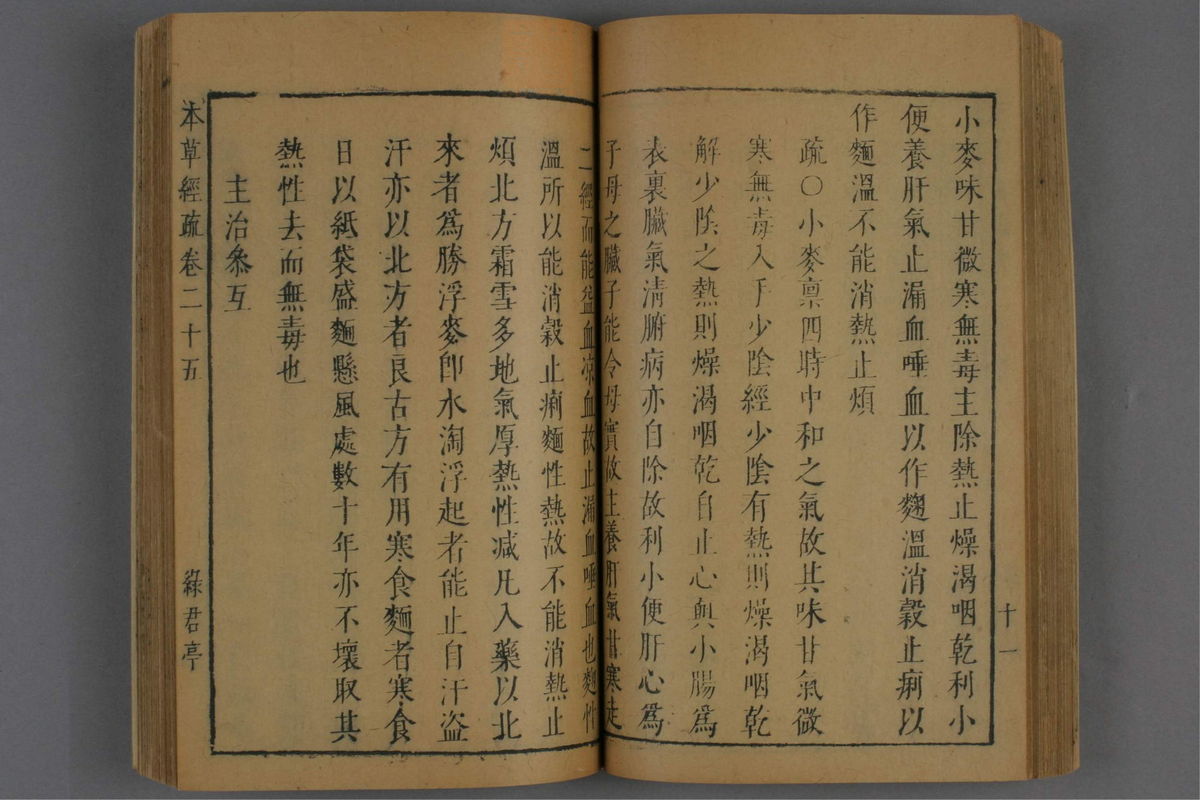 小麥味甘微寒無毒主除熱止燥渴咽乾利小
便養肝氣止漏血唾血以作麴溫消穀止痢以
作麵溫不能消熱止煩
疏○小麥禀四時中和之氣故其味甘氣微
寒無毒入手少陰經少陰有熱則燥渴咽乾
解少陰之熱則燥渴咽乾自止心與小腸為
表裏臟氣清腑病亦自除故利小便肝心為
子母之臟子能令母實故主養肝氣甘寒走
二經而能益血凉血故止漏血唾血也麴性
溫所以能消穀止痢麵性熱故不能消熱止
煩北方霜雪多地氣厚熱性减凡入藥以北
來者爲勝浮麥卽水淘浮起者能止自汗盜
汗亦以北方者良古方有用寒食麵者寒食
日以紙袋盛麵懸風處數十年亦不壞取其
熱性去而無毒也
主治叅互
本草經疏卷二十五
綠君亭
十一